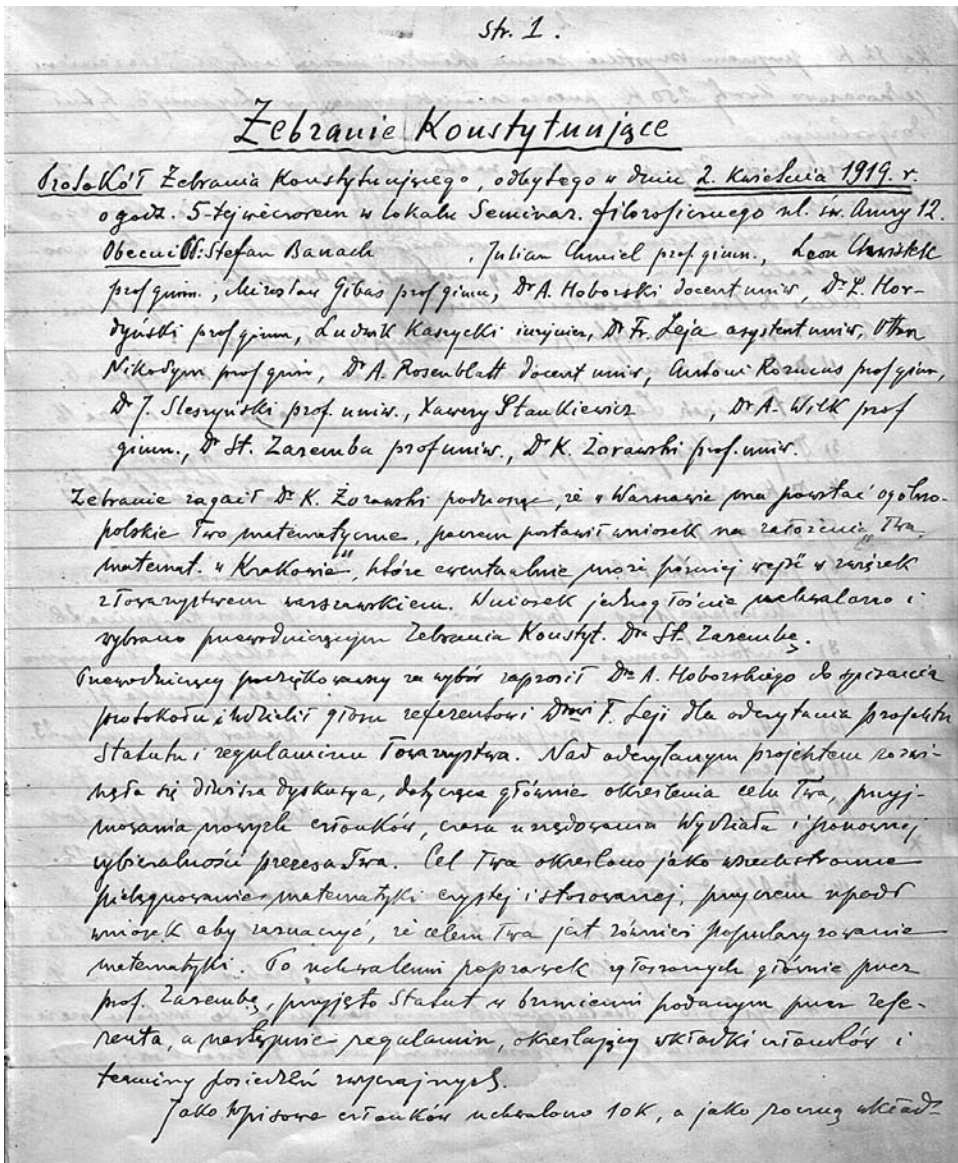 str. 1.
Zebranie Konstytuujące
Protokół Zebrania Konstytuującego, odbytego w dniu 2. kwietnia 1919. r.
o godz. 5-tej wieczorem w lokalu Seminar. filozoficznego ul. św. Anny 12.
Obecni PP.: Stefan Banach , Julian Chmiel prof. gimn., Leon Chwistek
prof gimn., Mirosław Gibas prof gimn, Dr A. Hoborski docent uniw, Dr L. Hor-
dyński prof gimn, Ludwik Kaszycki inżynier, Dr Fr. Leja asystent uniw, Otton
Nikodym prof gimn, Dr A. Rosenblatt docent uniw, Antoni Rozmus prof gimn,
Dr J. Sleszyński prof. uniw., Xawery Stankiewicz , Dr A. Wilk prof
gimn., Dr St. Zaremba prof uniw., Dr K. Żorawski prof. uniw.
Zebranie zagaił Dr K. Żorawski podnosząc, że w Warszawie ma powstać ogólno-
polskie Two matematyczne, poczem postawił wniosek na założenie "Twa
matemat. w Krakowie", które ewentualnie może później wejść w związek
z Towarzystwem warszawskiem. Wniosek jednogłośnie uchwalono i
wybrano przewodniczącym Zebrania Konstyt. Dra St. Zarembę.
Przewodniczący podziękowawszy za wybór zaprosił Dra A. Hoborskiego do spisania
protokołu i udzielił głosu referentowi Drowi F. Leji dla odczytania projektu
Statutu i regulaminu Towarzystwa. Nad odczytanym projektem rozwi-
nęła się dłuższa dyskusya, dotycząca głównie określenia celu Twa, przyj-
mowania nowych członków, czasu urzędowania Wydziału i ponownej
wybieralności prezesa Twa. Cel Twa określono jako wszechstronne
pielęgnowanie matematyki czystej i stosowanej, przyczem upadł
wniosek aby zaznaczyć, że celem Twa jest również popularyzowanie
matematyki. Po uchwaleniu poprawek zgłoszonych głównie przez
prof. Zarembę, przyjęto Statut w brzmieniu podanym przez refe-
renta, a następnie regulamin, określający wkładki członków i
terminy posiedzeń zwyczajnych.
Jako wpisowe członków uchwalono 10K, a jako roczną wkład-